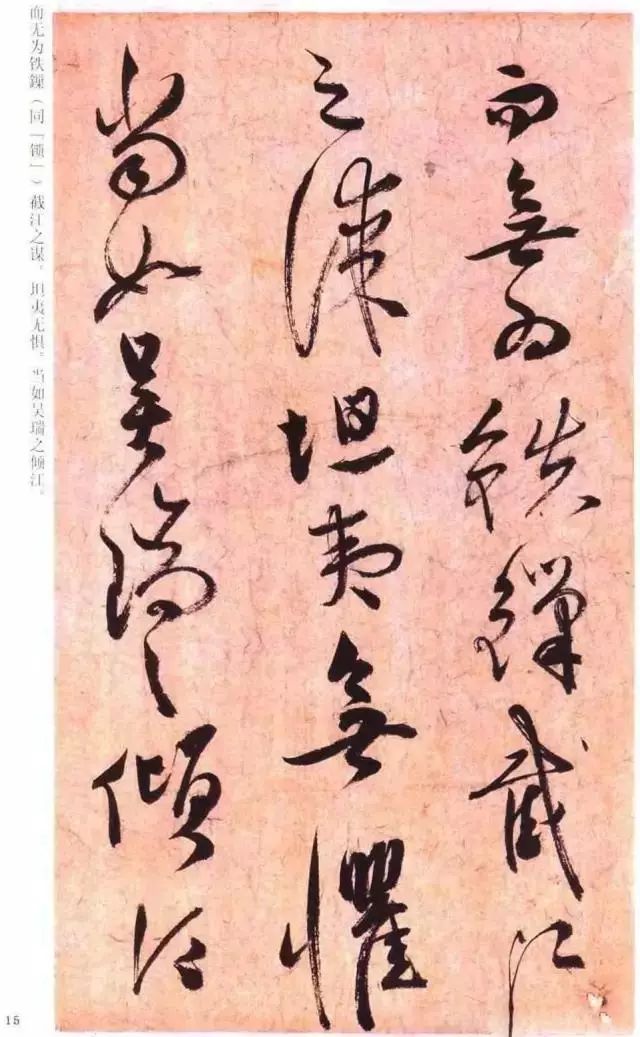 而無為鐵鏁截江
之謀坦夷無懼
當如吳瑞之傾江
而无为铁鏁（同「锁」）截江之谋。坦夷无惧。当如吴瑞之倾江。
15